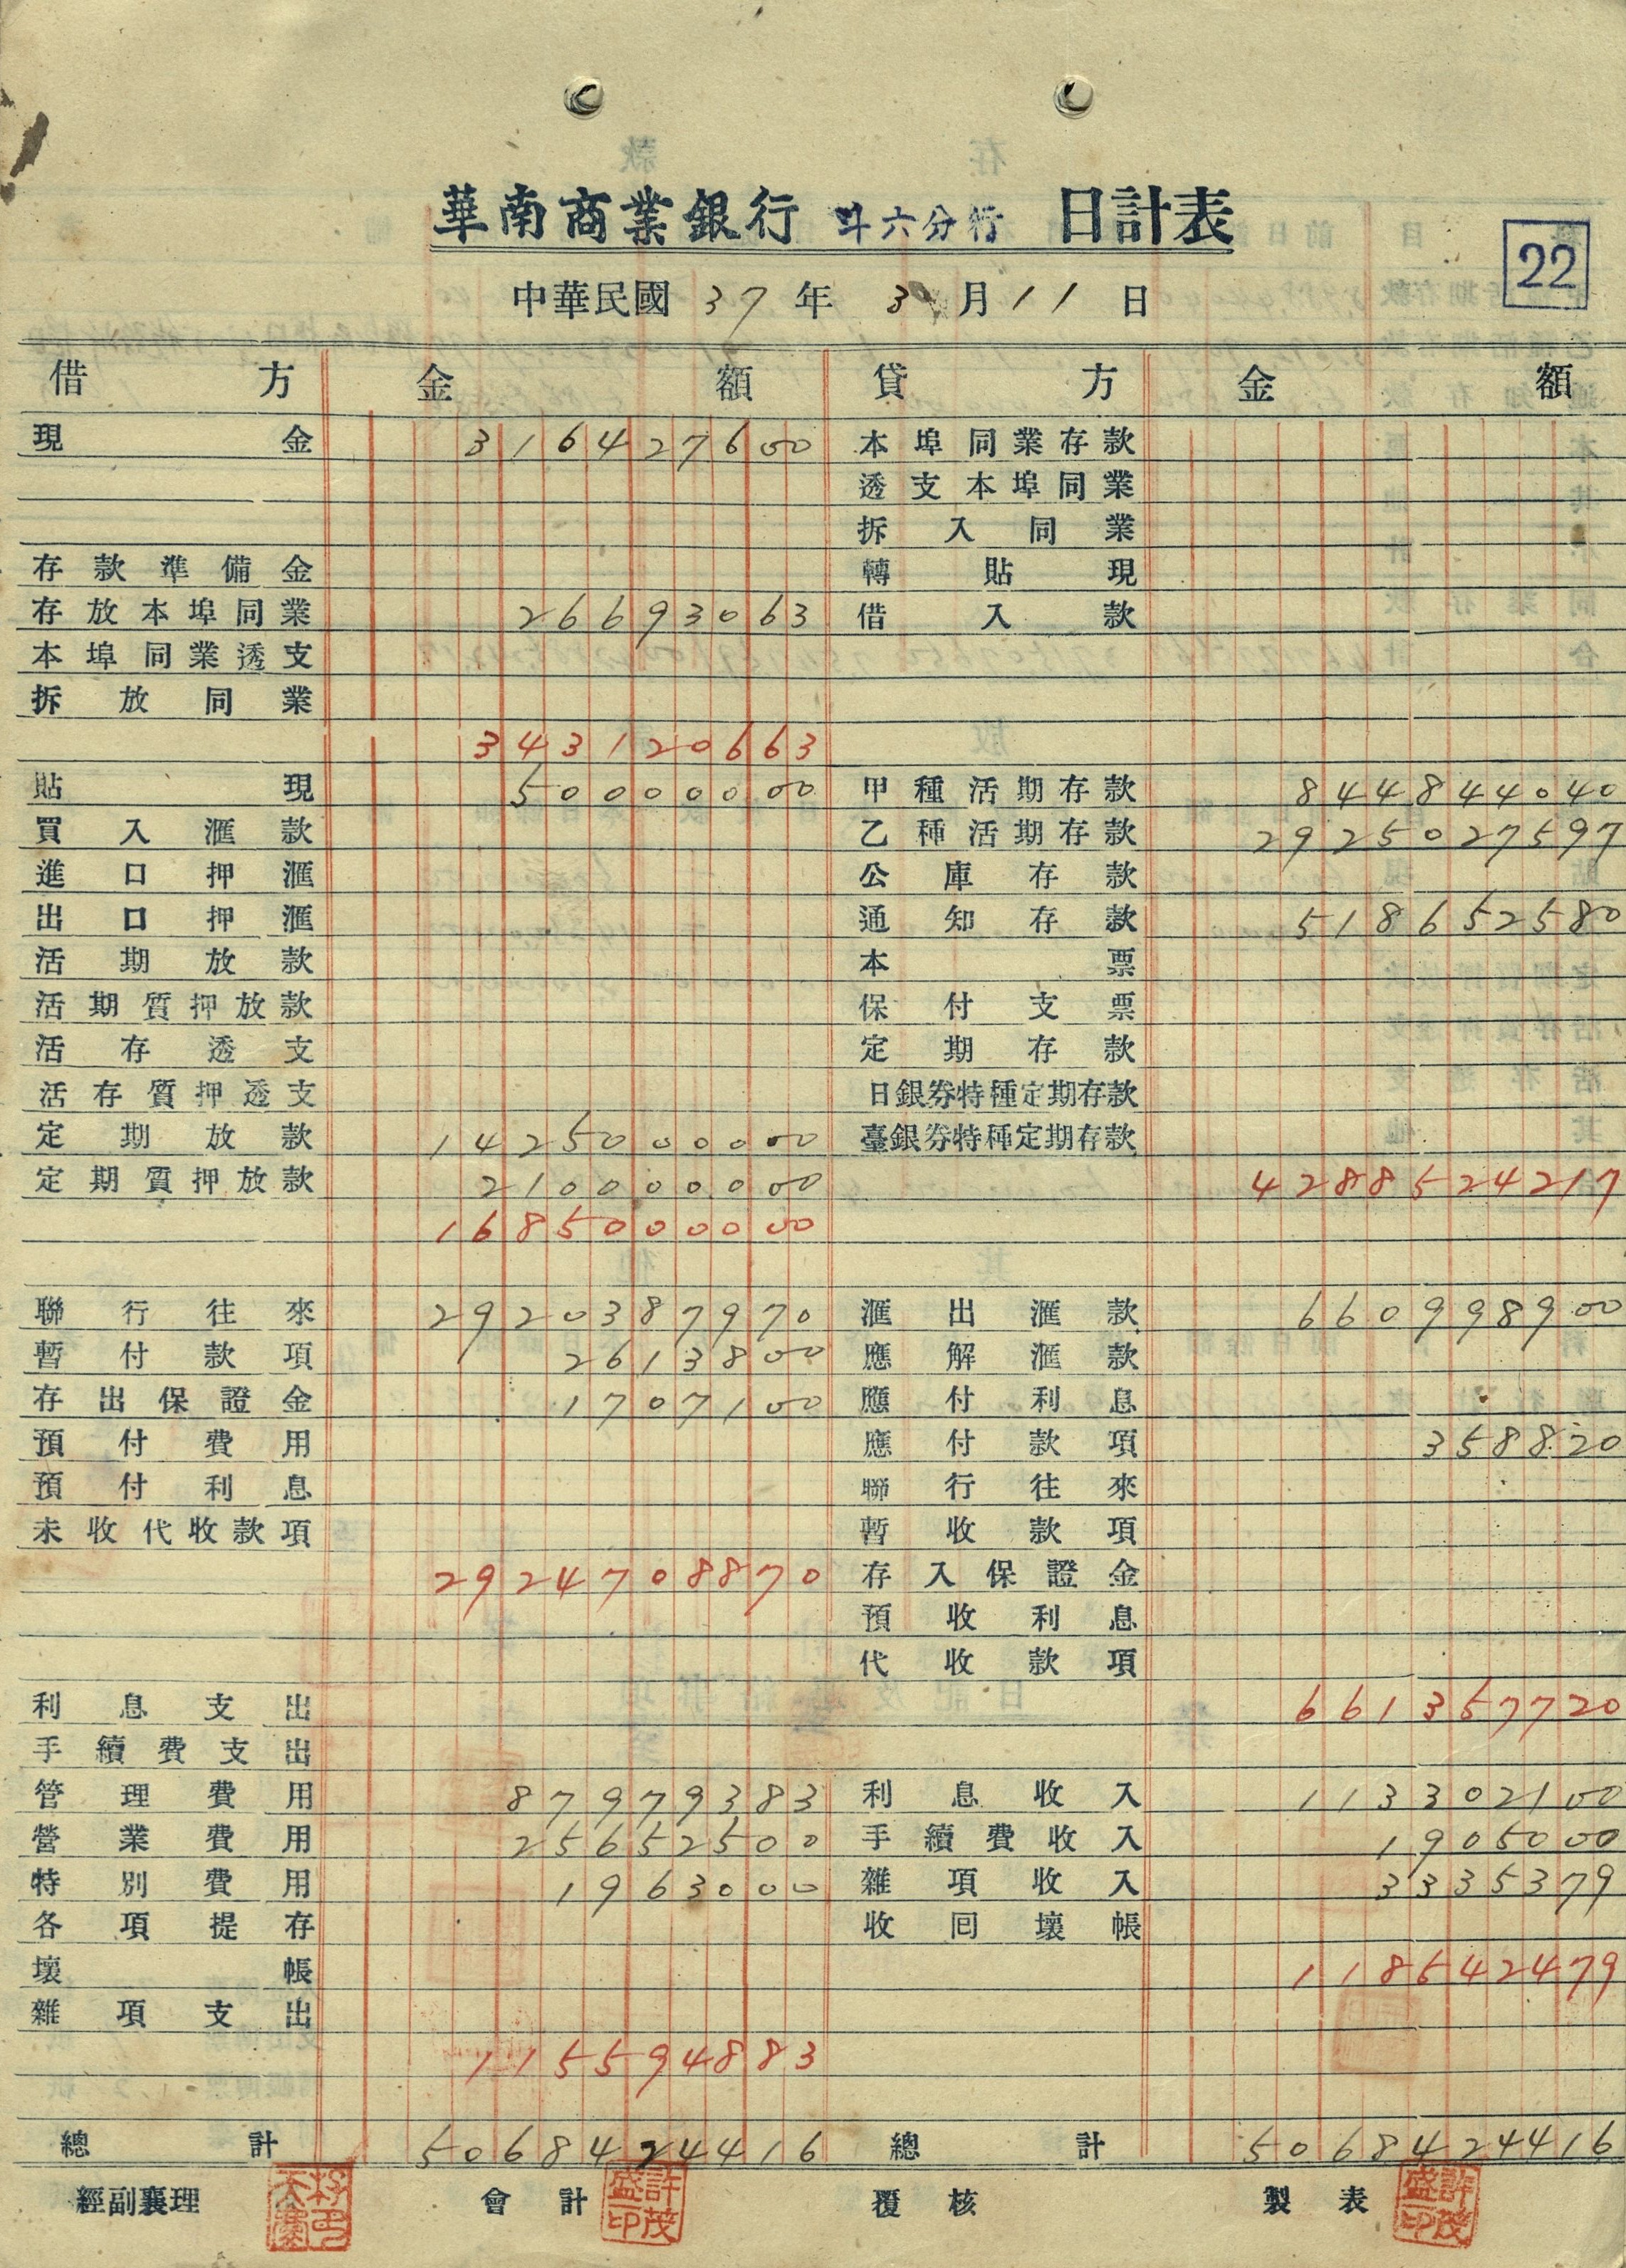 華南商業銀行 斗六分行 日計表
22
中華民國 37 年 3 月 11 日
借方 金額 貸方 金額
現金 316427600 本埠同業存款
透支本埠同業
拆入同業
存款準備金 轉貼現
存放本埠同業 26693063 借入款
本埠同業透支
拆放同業
343120663
貼現 50000000 甲種活期存款 844844040
買入滙款 乙種活期存款 2925027597
進口押滙 公庫存款
出口押滙 通知存款 518652580
活期放款 本票
活期質押放款 保付支票
活存透支 定期存款
活存質押透支 日銀券特種定期存款
定期放款 1425000000 臺銀券特種定期存款
定期質押放款 210000000 4288524217
1685000000
聯行往來 2920387970 滙出滙款 660998900
暫付款項 2613800 應解滙款
存出保證金 1707100 應付利息
預付費用 應付款項 358820
預付利息 聯行往來
未收代收款項 暫收款項
2924708870 存入保證金
預收利息
代收款項
利息支出 661357720
手續費支出
管理費用 87979383 利息收入 113302100
營業費用 25652500 手續費收入 1905000
特別費用 1963000 雜項收入 3335379
各項提存 收回壞帳
壞帳 118542479
雜項支出
115594883
總計 5068424416 總計 5068424416
經副襄理 會計 許茂盛印 覆核 製表 許茂盛印